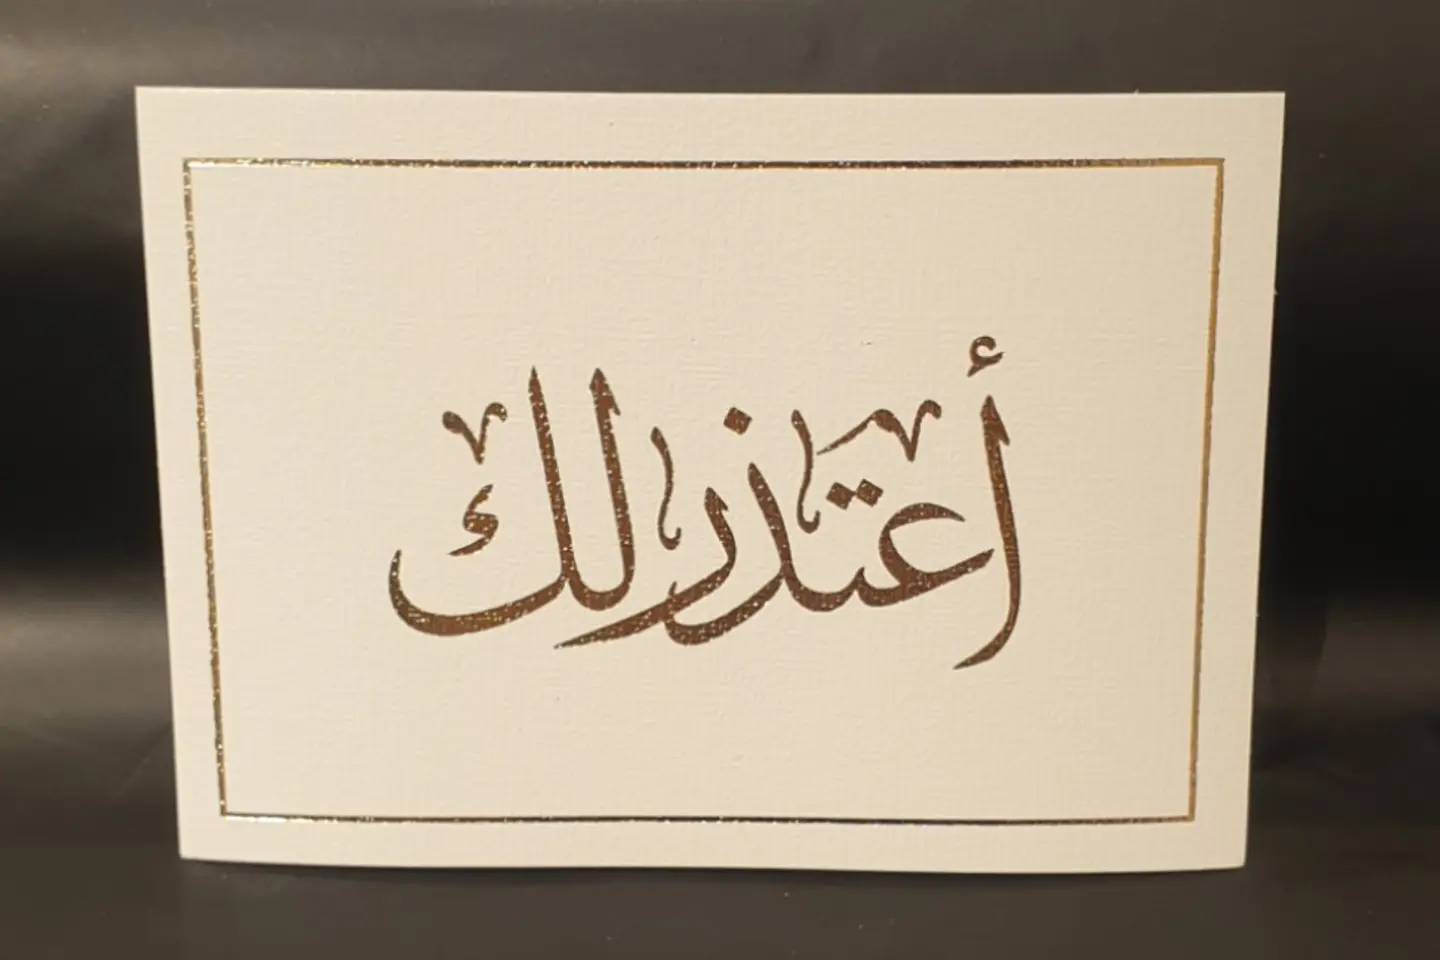 أعتذر لك